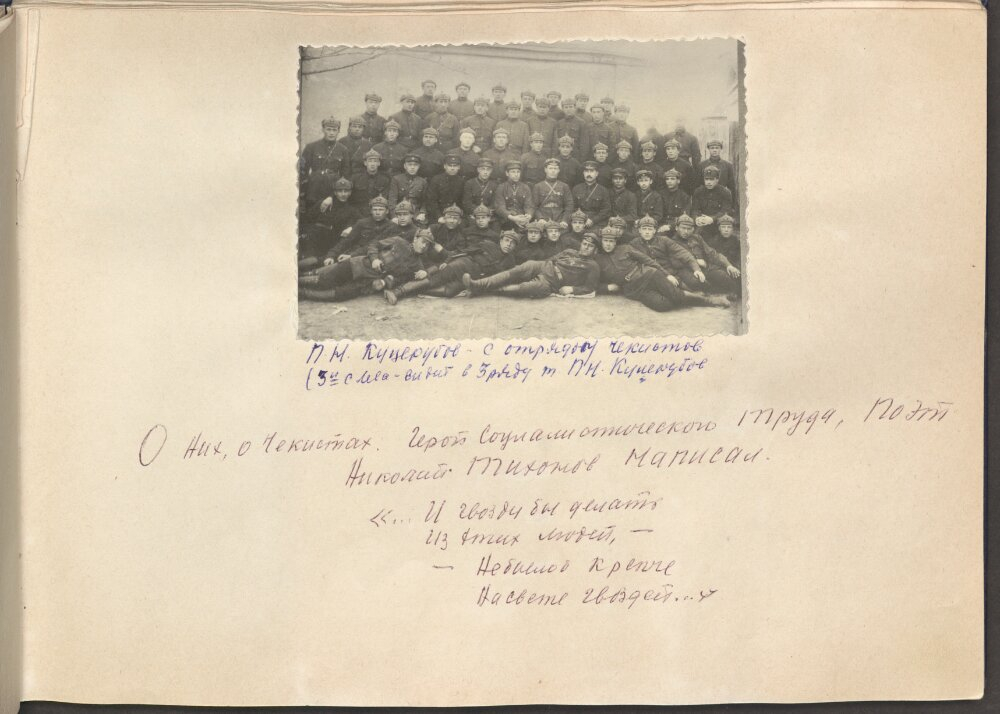 П.Н. Куцекубов - с отрядом чекистов
(3й слева-сидит в 3 ряду т. П.Н. Куцекубов
О них, о Чекистах. Герой Социалистического Труда, Поэт
Николай Тихонов написал.
«... И гвозди бы делать
из этих людей, —
— Небыло б крепче
На свете гвоздей...»